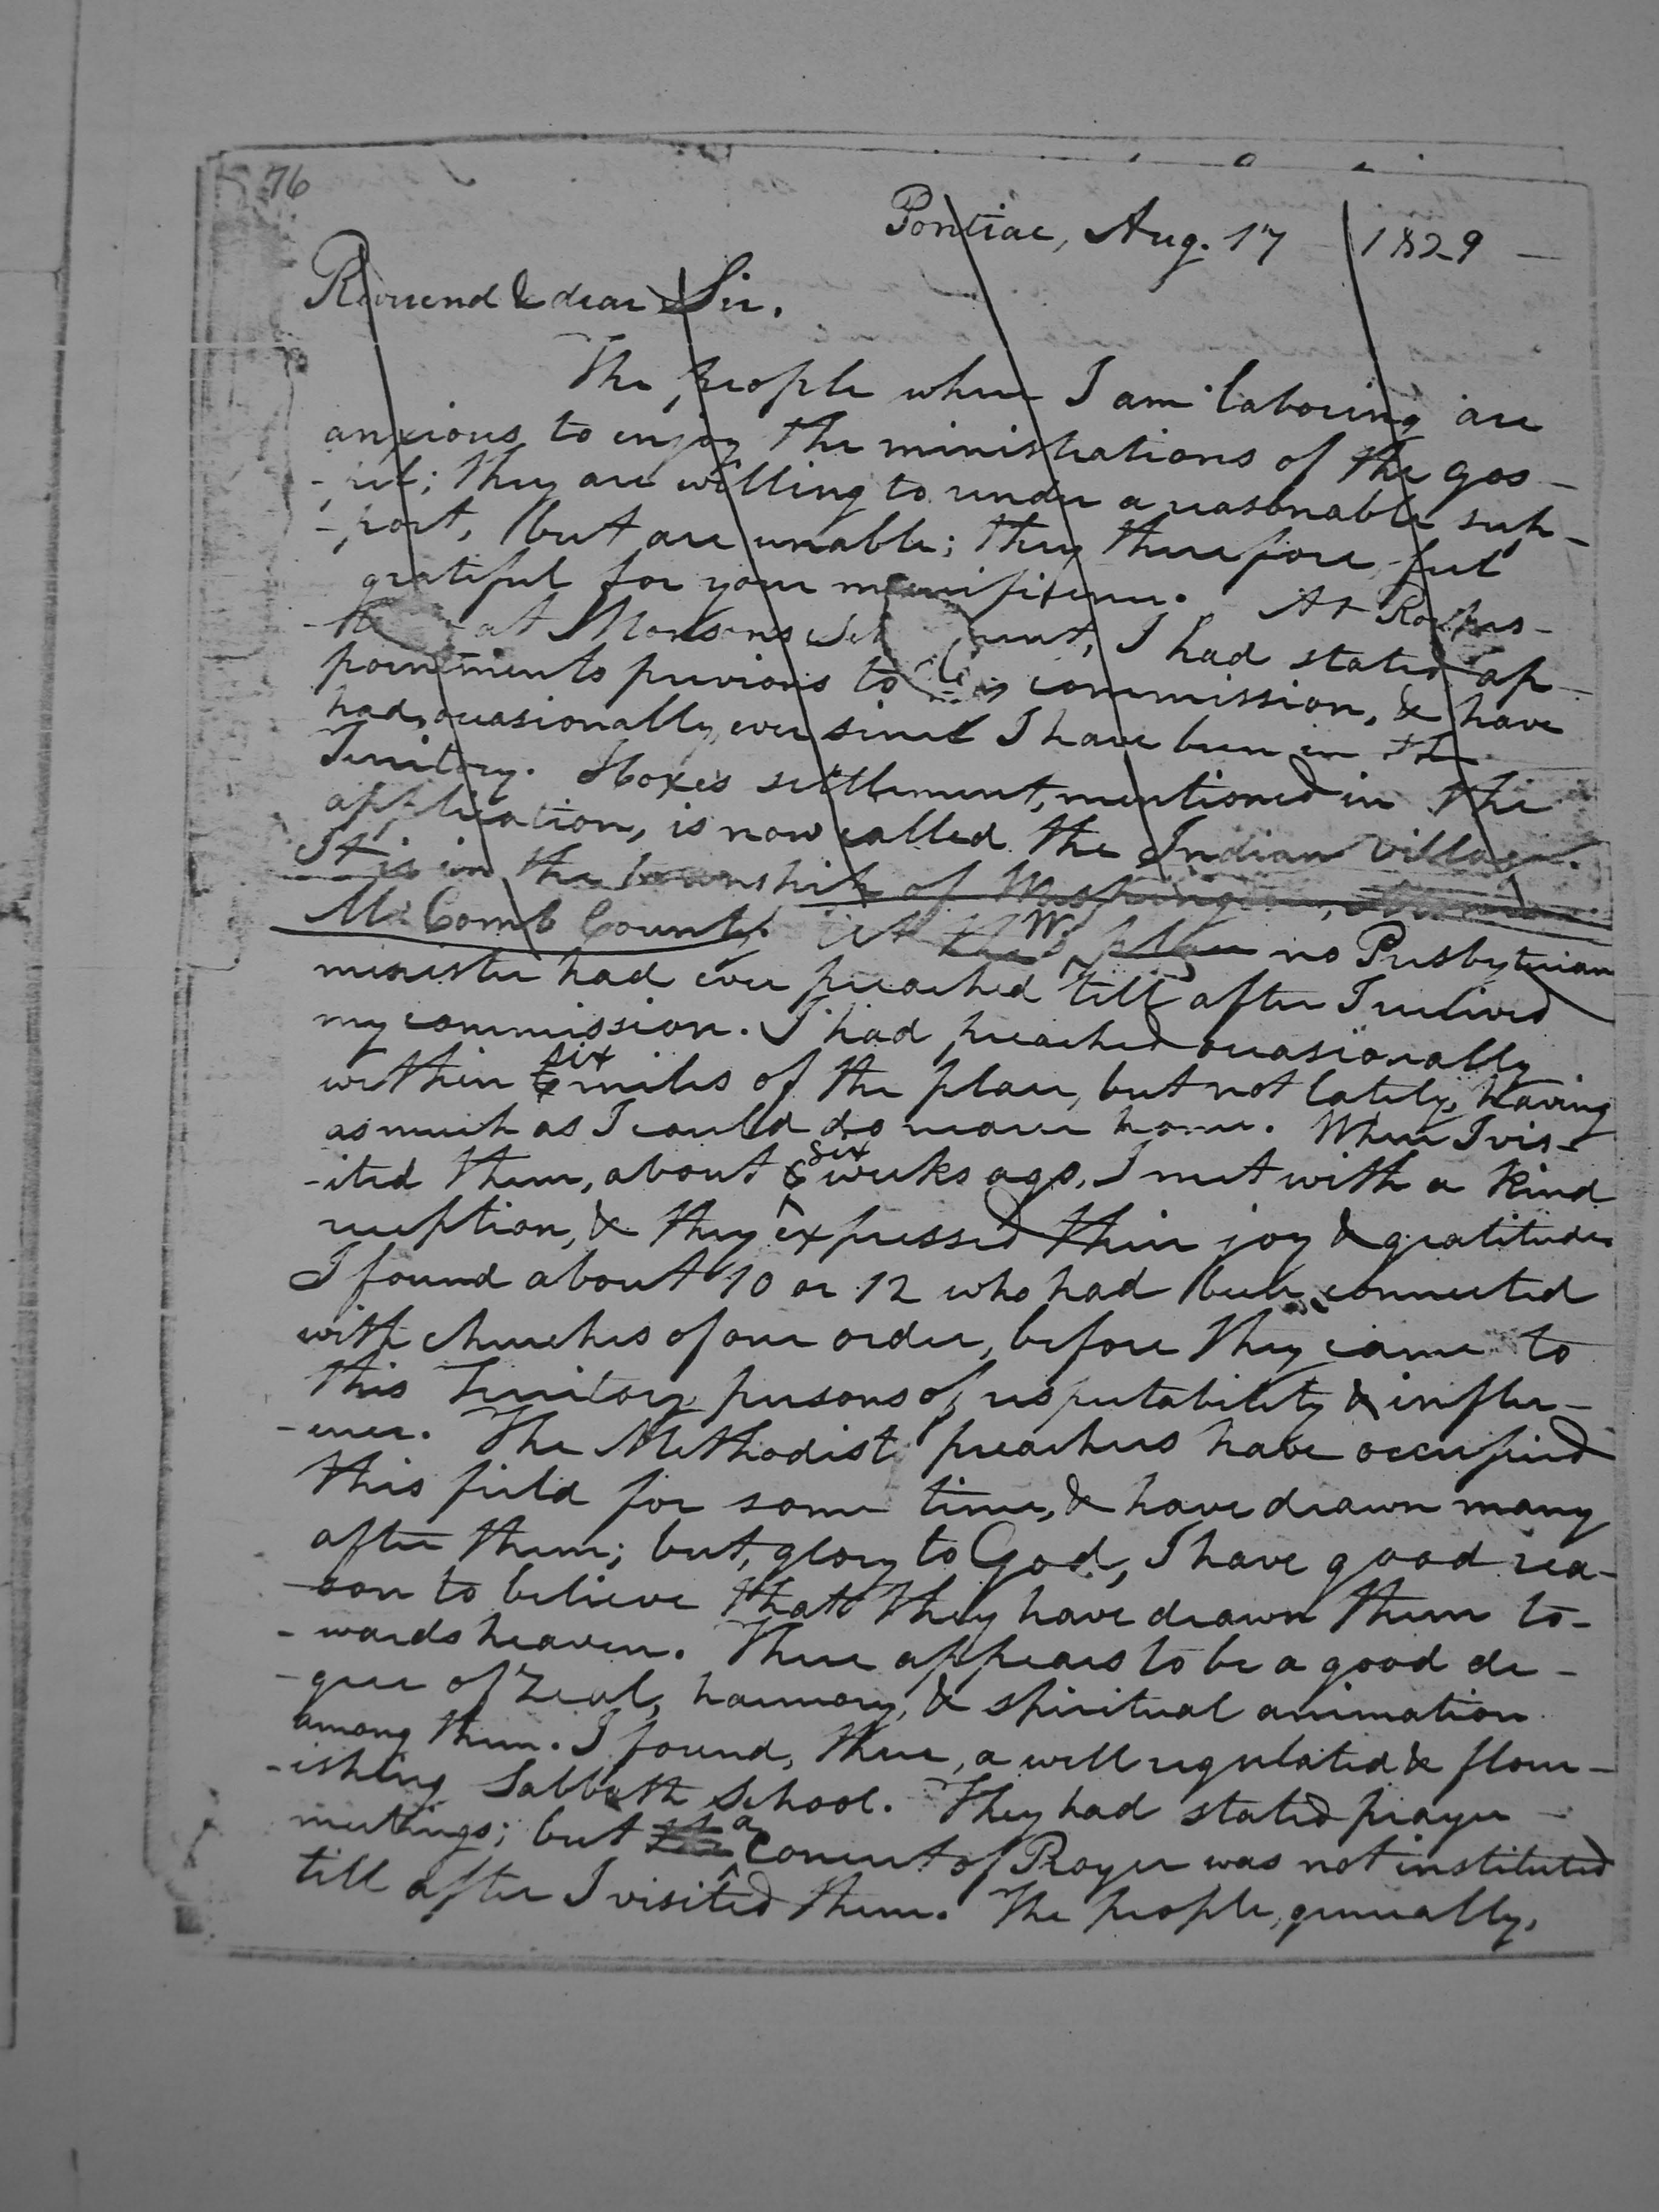 76
Pontiac, Aug. 17 1829 —
Reverend & dear Sir.
The people where I am laboring are
anxious to enjoy the ministrations of the gos-
-pel; they are willing to render a reasonable sup-
-port, but are unable; they therefore feel
grateful for your munificence. At Roches-
-te at Monsons Set ment, I had stated ap-
pointments previous to my commission, & have
had, occasionally, ever since I have been in the
Territory. Hoxes settlement, mentioned in the
application, is now called the Indian Village.
It is in the township of Washington,
McComb County. At this place no Presbyterian
W.
minister had ever preached till after I recieved
my commission. I had preached occasionally
within 6 six miles of the place, but not lately, having
as much as I could do nearer home. When I vis-
-ited them, about 6 six weeks ago, I met with a kind
reception, & they expressed their joy & gratitude.
I found about 10 or 12 who had been connected
with churches of our order, before they came to
this Territory persons of respectability & influ-
-ence. The Methodist preachers have occupied
this field for some time, & have drawn many
after them; but, glory to God, I have good rea-
-son to believe that they have drawn them to-
-wards heaven. There appears to be a good de-
-gree of zeal, harmony, & spiritual animation
among them. I found, there, a well regulated & flour-
-ishing Sabbath School. They had stated prayer
meetings; but the a Concert of Prayer was not instituted
till after I visited them. The people, generally,